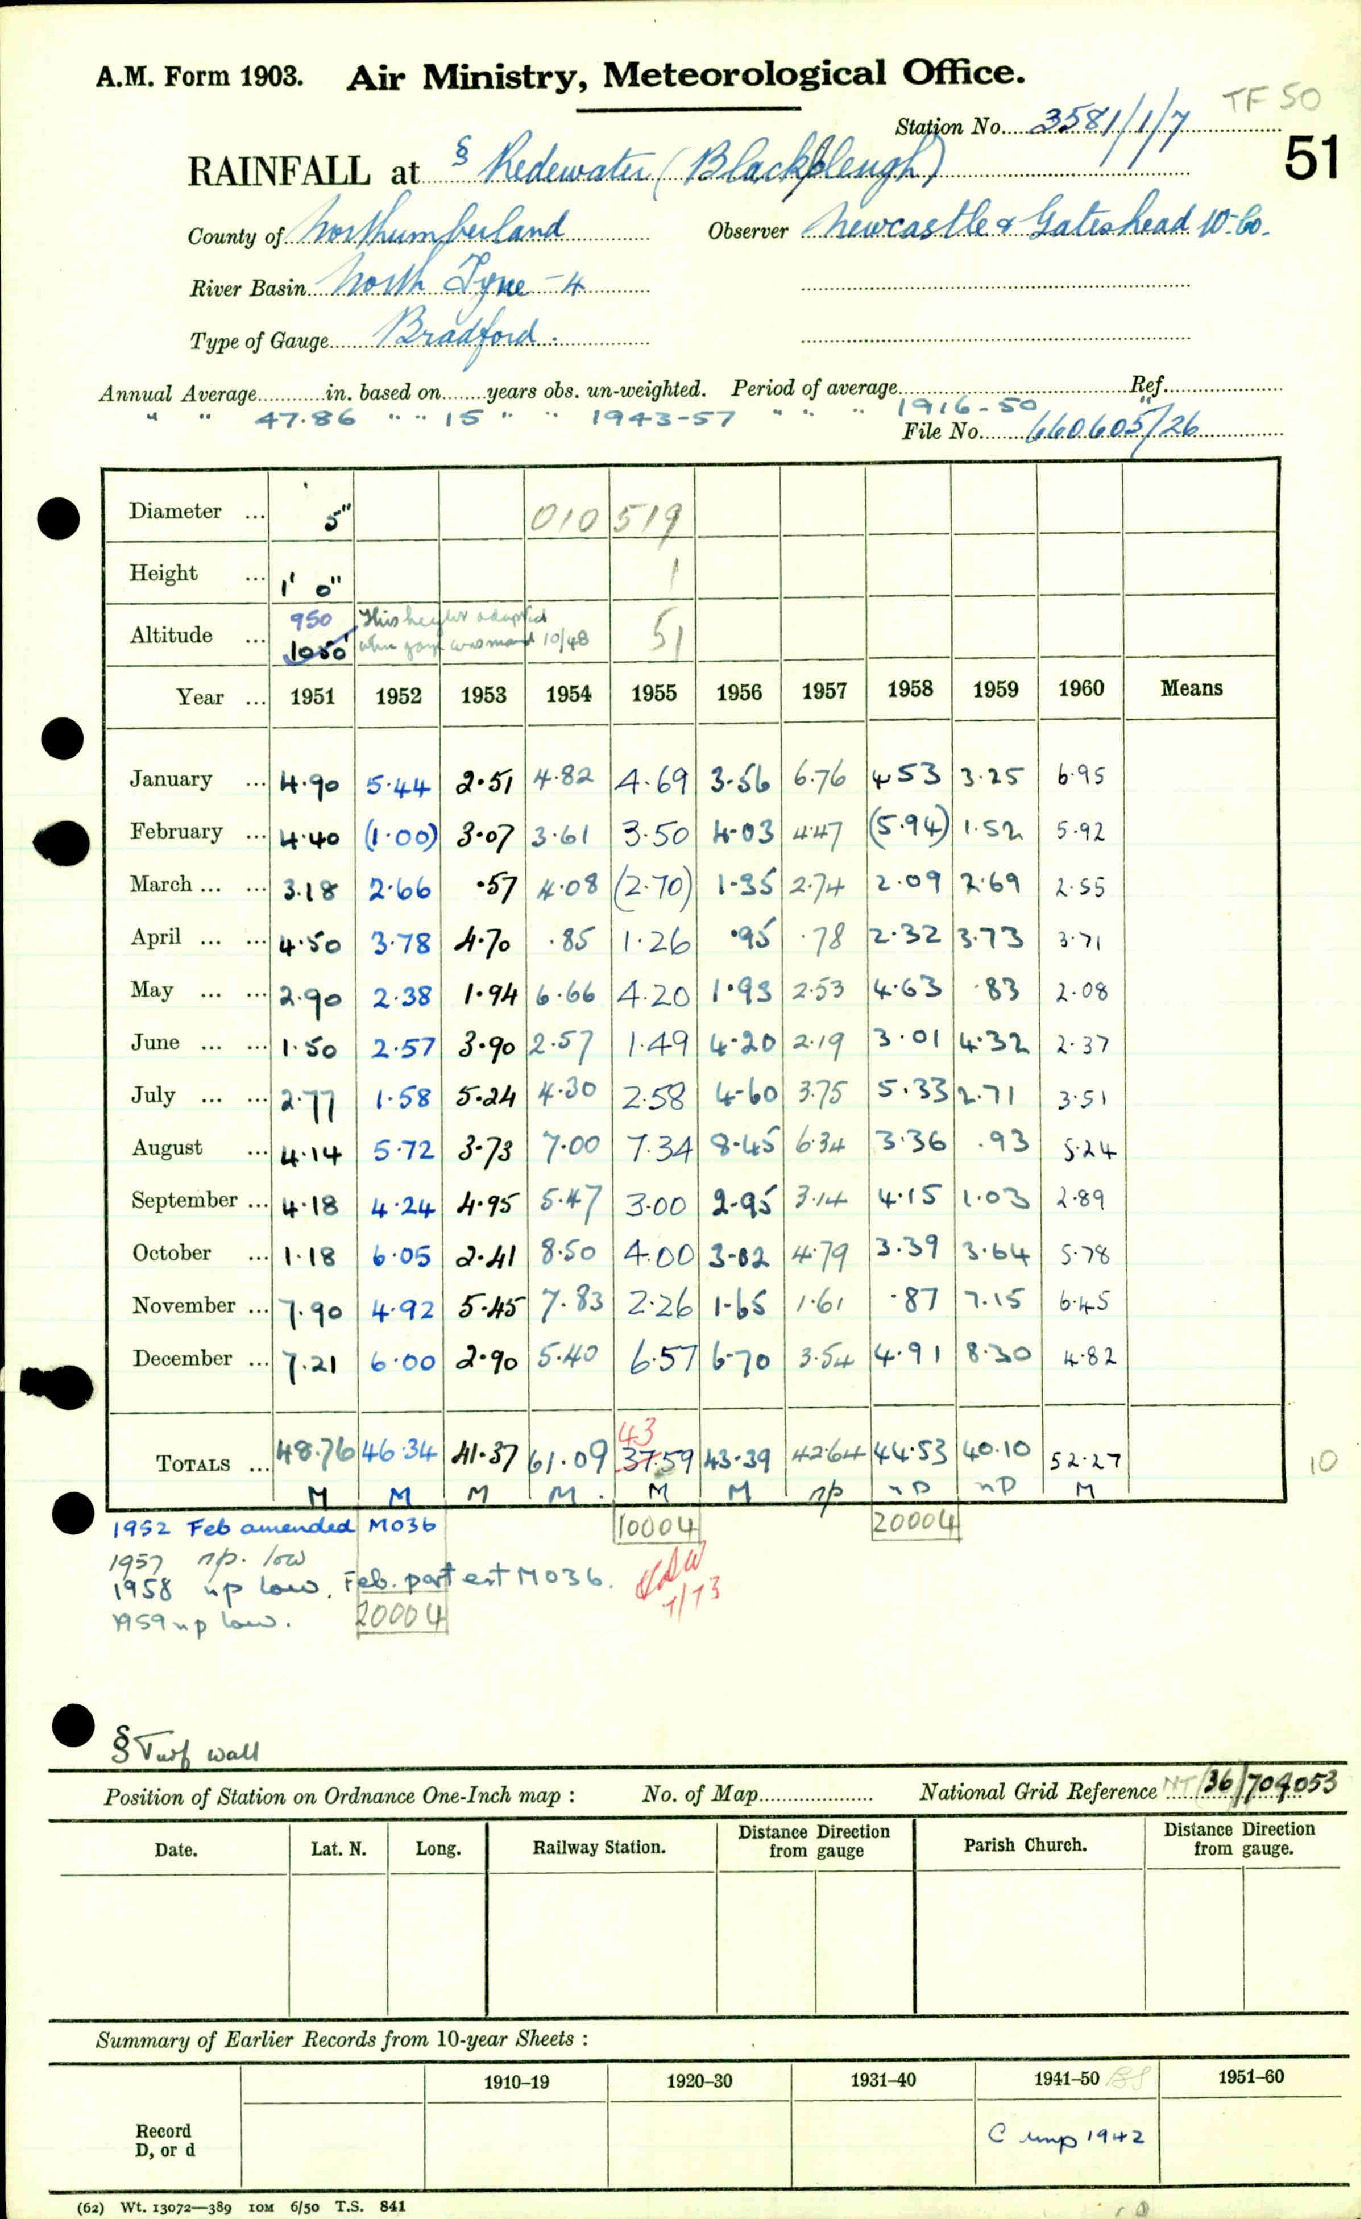 A.M. Form 1903. Air Ministry, Meteorological Office.
TF 50
Station No. 3581/1/7
51
RAINFALL at § Redewater (Blackbleugh)
County of Northumberland Observer Newcastle & Gateshead W. Co.
River Basin North Tyne - 4
Type of Gauge Bradford.
Annual Average............in. based on........years obs. un-weighted. Period of average............ Ref............
" " 47.86 " " 15 " " 1943-57 " " " 1916-50 "
File No. 660605/26
Diameter ... 5" 010 519
Height ... 1' 0" 1
Altitude ... 950 1050' This height adopted when gauge was moved 10/48 51
Year ... 1951 1952 1953 1954 1955 1956 1957 1958 1959 1960 Means
January ... 4.90 5.44 2.51 4.82 4.69 3.56 6.76 4.53 3.25 6.95
February ... 4.40 (1.00) 3.07 3.61 3.50 4.03 4.47 (5.94) 1.52 5.92
March ... ... 3.18 2.66 .57 4.08 (2.70) 1.35 2.74 2.09 2.69 2.55
April ... ... 4.50 3.78 4.70 .85 1.26 .95 .78 2.32 3.73 3.71
May ... ... 2.90 2.38 1.94 6.66 4.20 1.93 2.53 4.63 .83 2.08
June ... ... 1.50 2.57 3.90 2.57 1.49 4.20 2.19 3.01 4.32 2.37
July ... ... 2.77 1.58 5.24 4.30 2.58 4.60 3.75 5.33 2.71 3.51
August ... 4.14 5.72 3.73 7.00 7.34 8.45 6.34 3.36 .93 5.24
September ... 4.18 4.24 4.95 5.47 3.00 2.95 3.14 4.15 1.03 2.89
October ... 1.18 6.05 2.41 8.50 4.00 3.02 4.79 3.39 3.64 5.78
November ... 7.90 4.92 5.45 7.83 2.26 1.65 1.61 .87 7.15 6.45
December ... 7.21 6.00 2.90 5.40 6.57 6.70 3.54 4.91 8.30 4.82
43
TOTALS ... 48.76 46.34 41.37 61.09 37.59 43.39 42.64 44.53 40.10 52.27
10
M M M M. M M np np np M
1952 Feb amended M036 10004 20004
1957 np. low
1958 np low. Feb. part est M036.
7/73
1959 np low. 20004
§ Turf wall
Position of Station on Ordnance One-Inch map : No. of Map.................... National Grid Reference NT (36)/704053
Date. Lat. N. Long. Railway Station. Distance Direction from gauge Parish Church. Distance Direction from gauge.
Summary of Earlier Records from 10-year Sheets :
1910–19 1920–30 1931–40 1941–50 1951–60
Record D, or d C unp 1942
(62) Wt. 13072—389 10M 6/50 T.S. 841